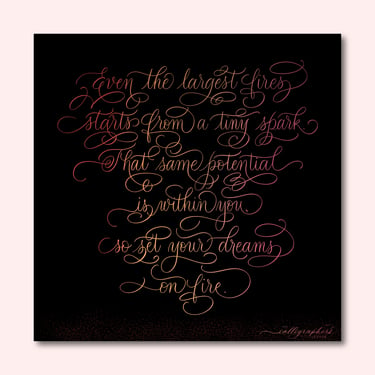 Even the largest fires
starts from a tiny spark
That same potential
is within you.
so set your dreams
on fire.
calligraphers